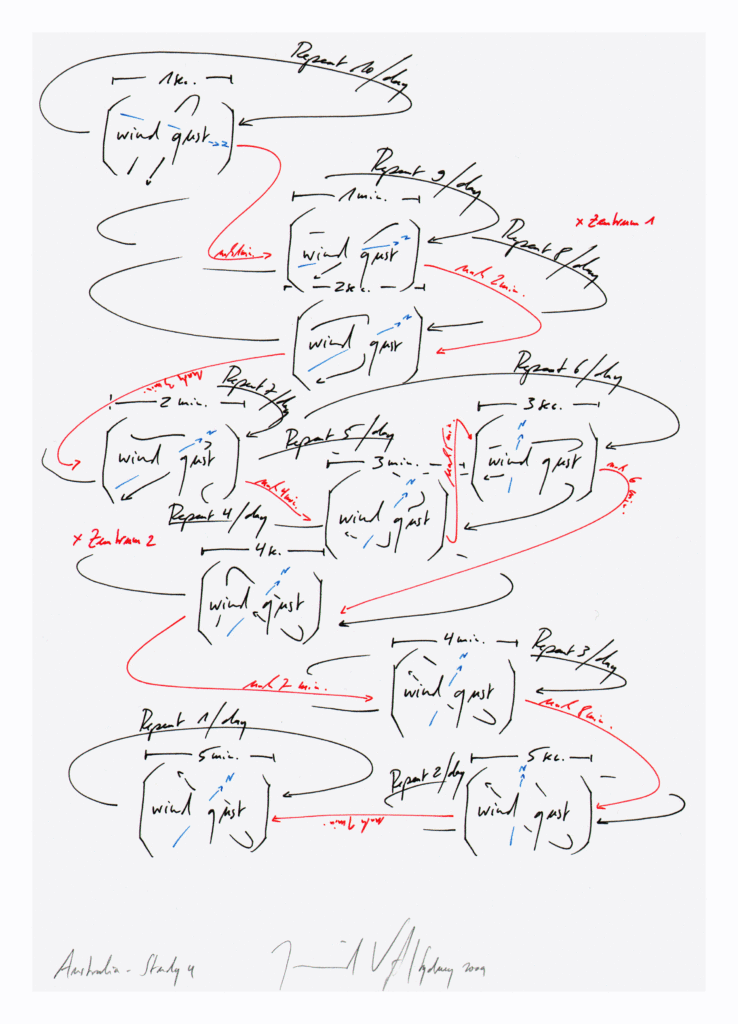 Repeat 10/day
1 sec.
wind gust
N
Repeat 9/day
1 min.
× Zentrum 1
wind gust
N
Repeat 8/day
nach 2 min.
2 sec.
wind gust
N
nach 3 min.
Repeat 7/day
2 min.
wind gust
N
Repeat 6/day
3 sec.
N
wind gust
Repeat 5/day
3 min.
N
wind gust
nach 4 min.
nach 5 min.
nach 6 min.
Repeat 4/day
× Zentrum 2
4 sec.
N
wind gust
nach 7 min.
4 min.
Repeat 3/day
N
wind gust
nach 8 min.
Repeat 1/day
5 min.
N
wind gust
Repeat 2/day
5 sec.
N
wind gust
nach 9 min.
Australia - Study 4
Sydney 2009